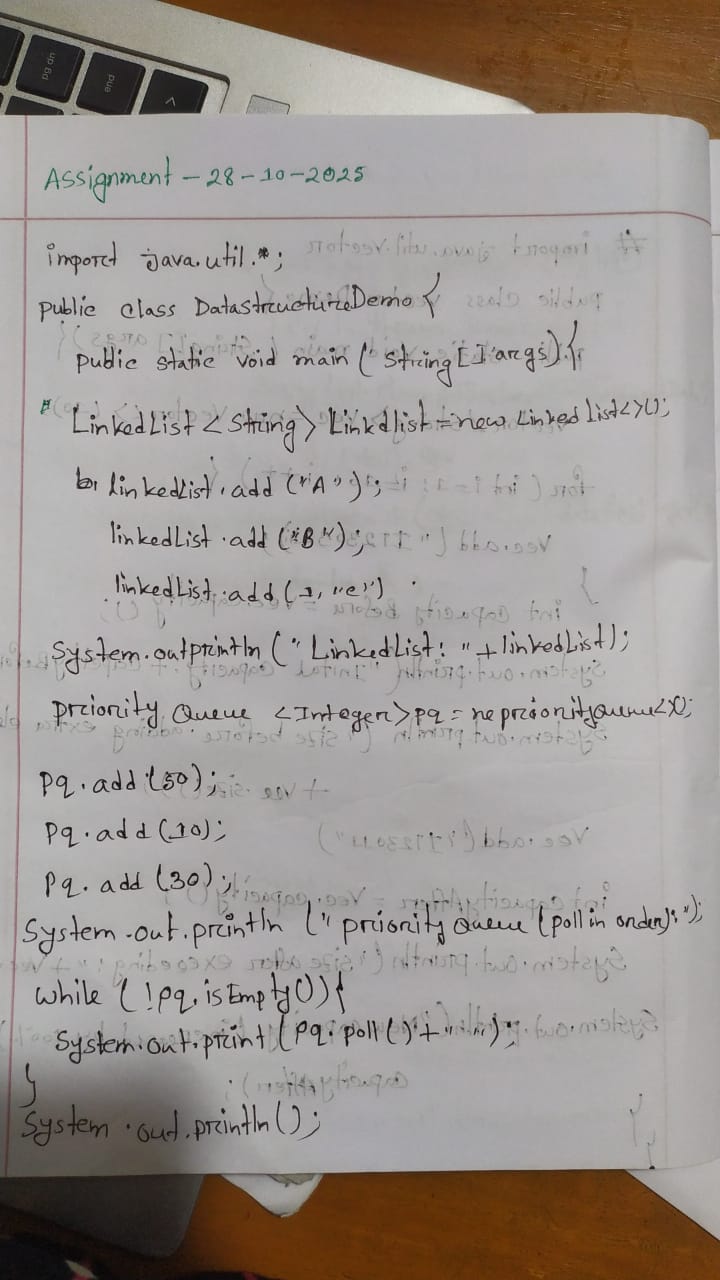 pg dn
end
Assignment - 28-10-2025
import java.util.*;
public class DatastructureDemo {
public static void main (String[] args) {
LinkedList <String> Linkdlist = new Linked list<>();
linkedList.add ("A");
linkedList.add ("B");
linkedList.add (1, "c")
System.outprintln ("LinkedList: " + linkedList);
priority Queue <Integer> pq = ne priorityQueue<>();
pq.add (50);
pq.add (10);
pq.add (30);
System.out.println ("priority Queue (poll in order): ");
while (!pq.isEmpty()) {
System.out.print (pq.poll() + " ");
}
System.out.println();